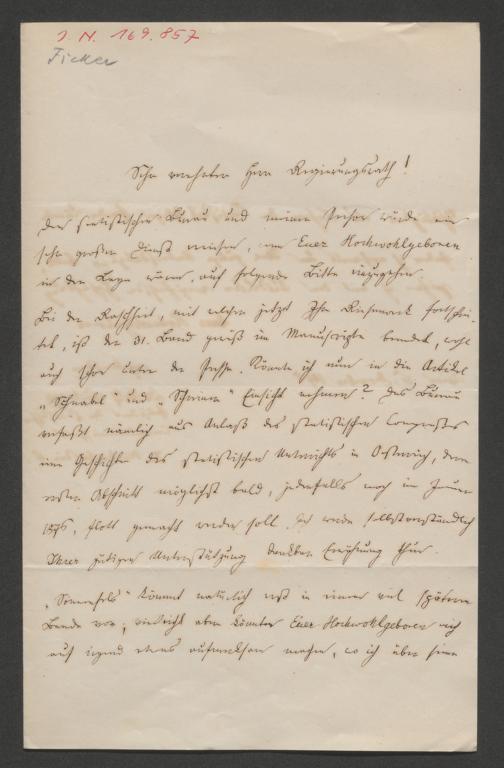 I. N. 169.857
Ficker
Sehr verehrter Herr Regierungsrath!
Dem statistischen Bureau und meiner Person würde ein
sehr großer Dienst erwiesen, wenn Euer Hochwohlgeboren
in der Lage wären, auf folgende Bitte einzugehen.
Bei der Raschheit, mit welcher jetzt Ihr Riesenwerk fortschrei-
tet, ist der 31. Band gewiß im Manuscripte beendet, wohl
auch schon unter der Presse. Könnte ich nun in die Artikel
„Schnabel" und „Schwarz" Einsicht nehmen? Das Bureau
verfaßt nämlich aus Anlaß des statistischen Congresses
eine Geschichte des statistischen Unterrichts in Oesterreich, deren
erster Abschnitt möglichst bald, jedenfalls noch im Jänner
1876, flott gemacht werden soll. Ich werde selbstverständlich
Ihrer gütigen Unterstützung dankbar Erwähnung thun.
„Sonnenfels" kommt natürlich erst in einem viel späteren
Bande vor; vielleicht aber könnten Euer Hochwohlgeboren mich
auf irgend etwas aufmerksam machen, wo ich über seine